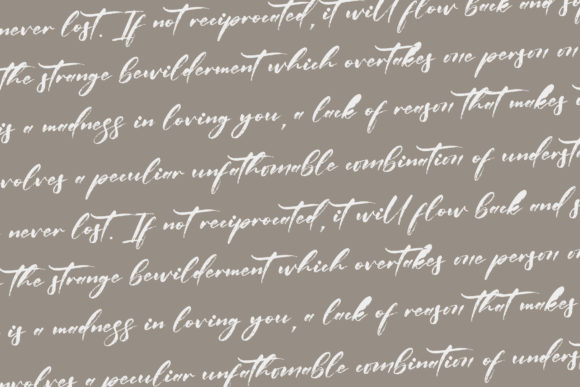 never lost. If not reciprocated, it will flow back and
the strange bewilderment which overtakes one person on
is a madness in loving you, a lack of reason that makes
a peculiar unfathomable combination of
never lost. If not reciprocated, it will flow back and
the strange bewilderment which overtakes one person on
is a madness in loving you, a lack of reason that makes
a peculiar unfathomable combination of